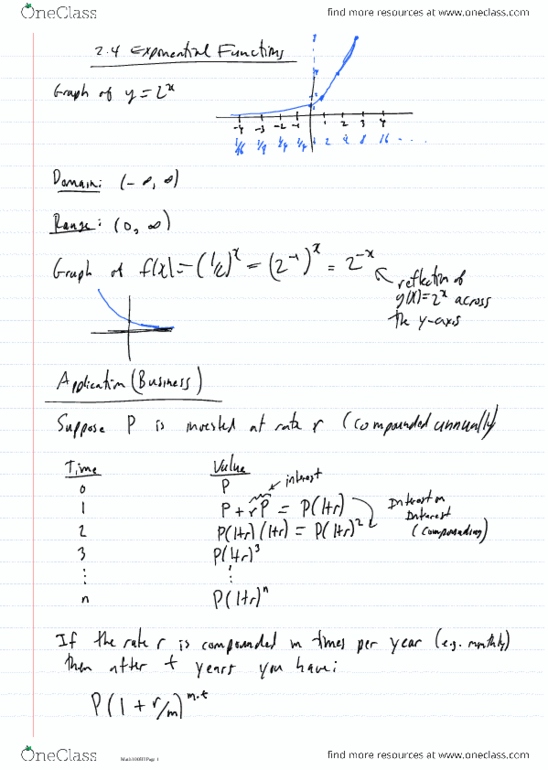 OneClass
find more resources at www.oneclass.com
2.4 Exponential Functions
Graph of y = 2ˣ
-4 -3 -2 -1 1 2 3 4
1/16 1/8 1/4 1/4 1 2 4 8 16 ...
Domain: (-∞, ∞)
Range: (0, ∞)
Graph of f(x) = (1/2)ˣ = (2⁻¹)ˣ = 2⁻ˣ
reflection of
g(x) = 2ˣ across
the y-axis
Application (Business)
Suppose P is invested at rate r (compounded annually)
Time Value
0 P
interest
1 P + rP = P(1+r)
2 P(1+r)(1+r) = P(1+r)²
Interest on
Interest
(compounding)
3 P(1+r)³
⋮ ⋮
n P(1+r)ⁿ
If the rate r is compounded m times per year (e.g. monthly)
then after t years you have:
P(1 + r/m)^m·t
OneClass
find more resources at www.oneclass.com